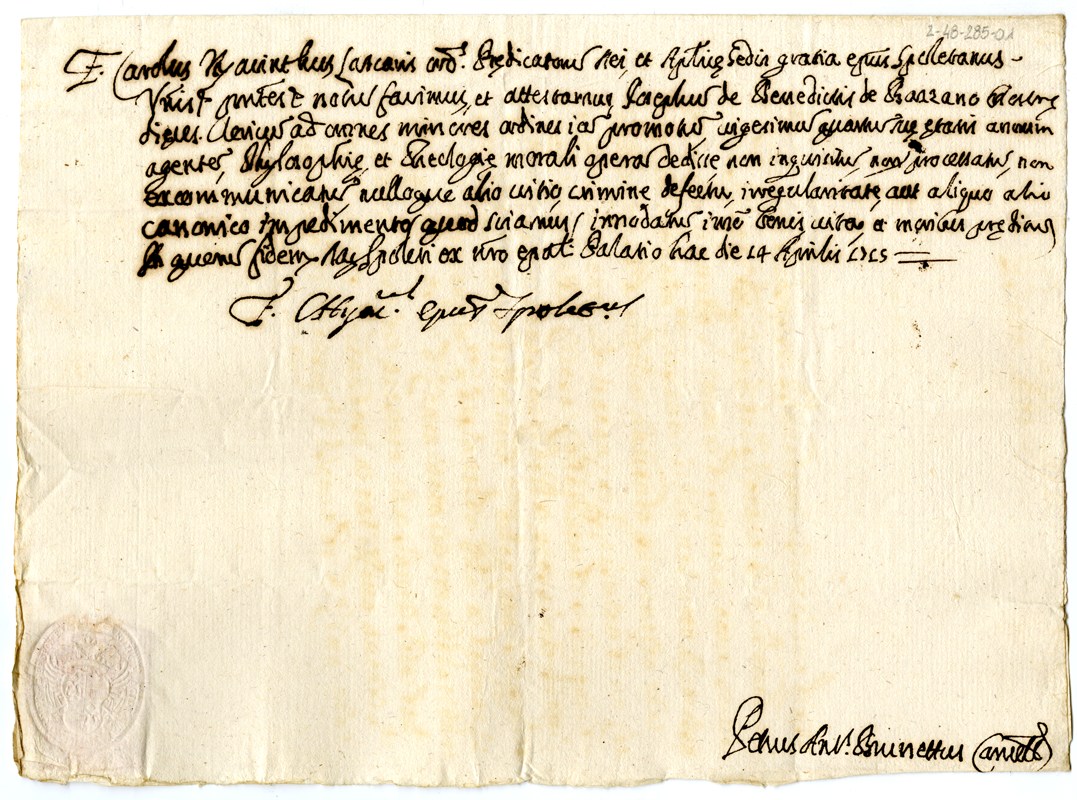 2-48-285-01
F. Carolus Hyacinthus Lascaris ord. Prędicatorus Dei, et Aplicę Sedis gratia epus Spoletanus
Unis pntes nobis facimus, et attestamus Josephus de Benedictis de Bazzano nostrę
dięces. Clericus ad omnes minores ordines iam promotus vigesimus quartus suę ętatis annum
agentes, Phylosophię, et Theologię morali operas dedisse non inquisitus, non processatus, non
excommunicatus nulloque alio vitio, crimine defectu, irregularitate, aut aliquo alio
canonico impedimento quod sciamus innodatus imò bonis vita, et moribus prędicus
In quorus fidem Spoleti ex nro epali Palatio hac die 14 Aprilis 1715
F. C Hyac. epus Spoletus
Petrus Ant. Brunettus Cancell